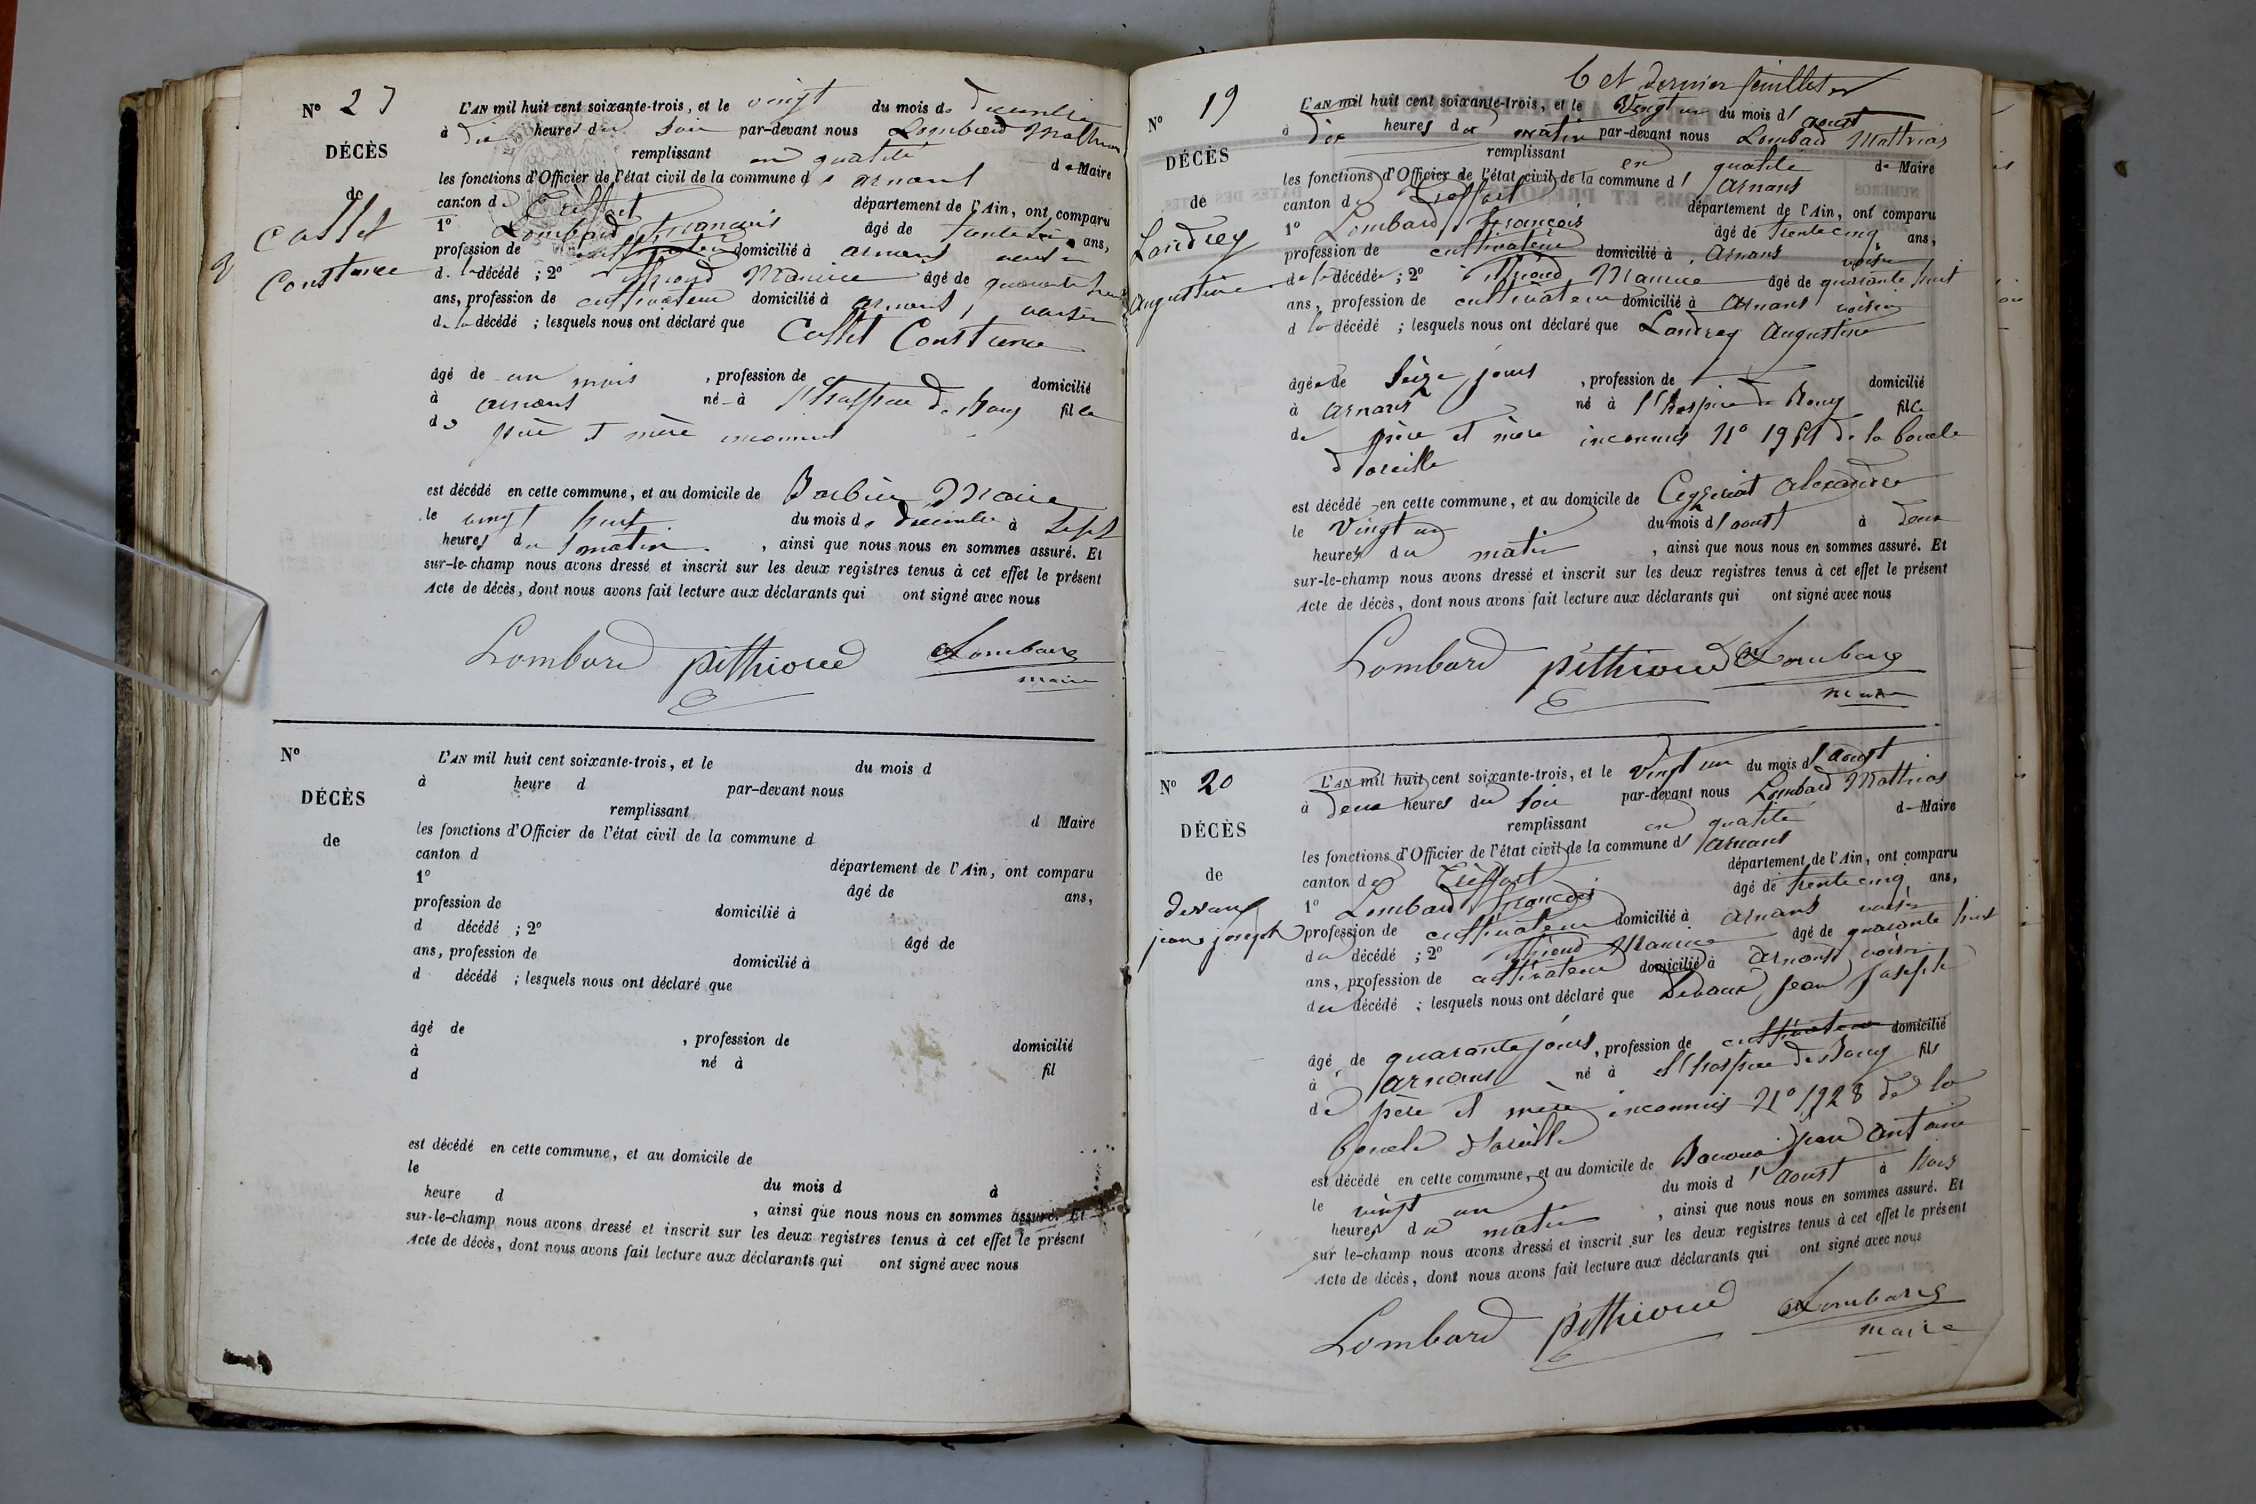 N° 23
DÉCÈS
de
Collet
Constance
L'AN mil huit cent soixante-trois, et le vingt du mois de decembre
à dix heures du soir par-devant nous Lombard Mathias
remplissant en qualité de Maire
les fonctions d'Officier de l'état civil de la commune d'arnans
canton de Treffort département de l'Ain, ont comparu
1° Lombard François âgé de trente six ans,
profession de cultivateur domicilié à arnans voisin
de la décédé ; 2° pithioud Maurice âgé de quarante huit
ans, profession de cultivateur domicilié à arnans, voisin
de la décédé ; lesquels nous ont déclaré que Collet Constance
âgé de un mois , profession de domicilié
à arnans né à l'hospice de Bourg fille
de père et mère inconnus
est décédé en cette commune, et au domicile de Barbier Marie
le vingt huit du mois de decembre à sept
heures du matin , ainsi que nous nous en sommes assuré. Et
sur-le-champ nous avons dressé et inscrit sur les deux registres tenus à cet effet le présent
Acte de décès, dont nous avons fait lecture aux déclarants qui ont signé avec nous
Lombard pithioud Lombard
maire
N°
DÉCÈS
de
L'AN mil huit cent soixante-trois, et le du mois d
à heure d par-devant nous
remplissant d Maire
les fonctions d'Officier de l'état civil de la commune d
canton d département de l'Ain, ont comparu
1° âgé de ans,
profession de domicilié à
d décédé ; 2° âgé de
ans, profession de domicilié à
d décédé ; lesquels nous ont déclaré que
âgé de , profession de domicilié
à né à fil
d
est décédé en cette commune, et au domicile de
le du mois d à
heure d , ainsi que nous nous en sommes assuré. Et
sur-le-champ nous avons dressé et inscrit sur les deux registres tenus à cet effet le présent
Acte de décès, dont nous avons fait lecture aux déclarants qui ont signé avec nous
6 et dernier feuillet
N° 19
DÉCÈS
de
Landrey
Augustine
L'AN mil huit cent soixante-trois, et le Vingt un du mois d'aoust
à dix heures du matin par-devant nous Lombard Mathias
remplissant en qualité de Maire
les fonctions d'Officier de l'état civil de la commune d'Arnans
canton de Treffort département de l'Ain, ont comparu
1° Lombard François âgé de trente cinq ans,
profession de cultivateur domicilié à Arnans voisin
de la décédée ; 2° pithioud Maurice âgé de quarante huit
ans, profession de cultivateur domicilié à Arnans voisin
de la décédé ; lesquels nous ont déclaré que Landrey Augustine
âgée de Seize jours , profession de domicilié
à Arnans né à l'hospice de Bourg fille
de père et mère inconnus N° 1951 de la boucle
d'oreille
est décédé en cette commune, et au domicile de Cezeriat alexandre
le Vingt un du mois d'aoust à deux
heures du matin , ainsi que nous nous en sommes assuré. Et
sur-le-champ nous avons dressé et inscrit sur les deux registres tenus à cet effet le présent
Acte de décès, dont nous avons fait lecture aux déclarants qui ont signé avec nous
Lombard pithioud Lombard
maire
N° 20
DÉCÈS
de
devaux
jean joseph
L'AN mil huit cent soixante-trois, et le Vingt un du mois d'aoust
à deux heures du soir par-devant nous Lombard Mathias
remplissant en qualité de Maire
les fonctions d'Officier de l'état civil de la commune d'arnans
canton de Treffort département de l'Ain, ont comparu
1° Lombard François âgé de trente cinq ans,
profession de cultivateur domicilié à arnans voisin
du décédé ; 2° pithioud Maurice âgé de quarante huit
ans, profession de cultivateur domicilié à arnans voisin
du décédé ; lesquels nous ont déclaré que Devaux Jean Joseph
âgé de quarante jours , profession de cultivateur domicilié
à arnans né à l'hospice de Bourg fils
de père et mère inconnus N° 1928 de la
Boucle d'oreille
est décédé en cette commune, et au domicile de jean antoine
le vingt un du mois d'aoust à trois
heures du matin , ainsi que nous nous en sommes assuré. Et
sur le-champ nous avons dressé et inscrit sur les deux registres tenus à cet effet le présent
Acte de décès, dont nous avons fait lecture aux déclarants qui ont signé avec nous
Lombard pithioud Lombard
maire